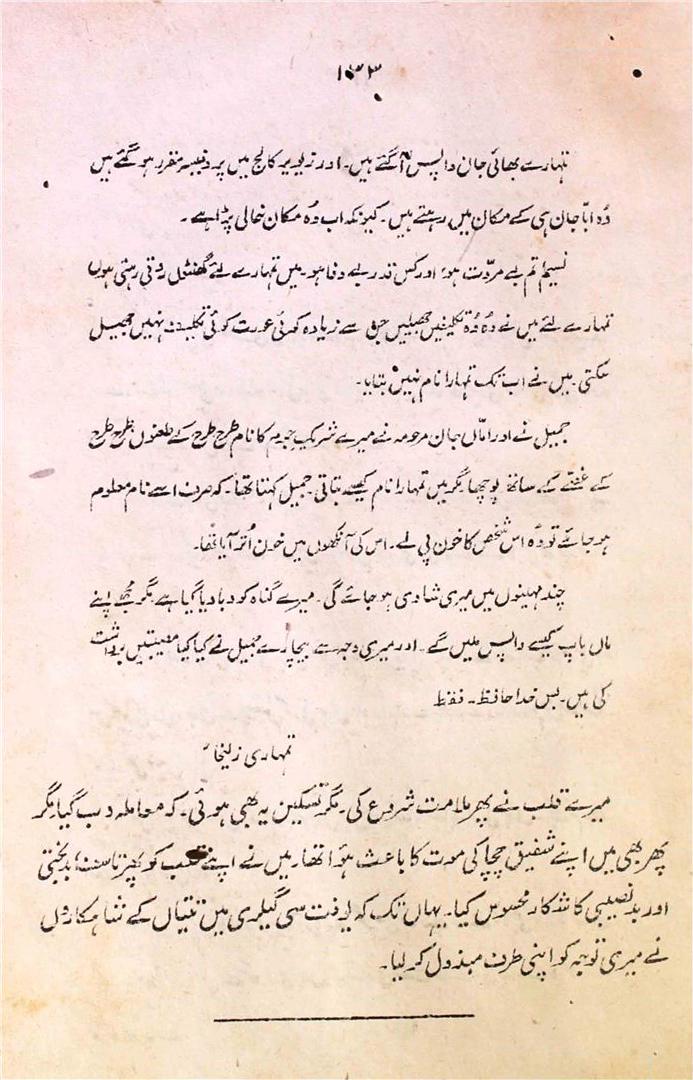 ۱۳۳
تمہارے بھائی جان واپس آگئے ہیں۔ اور زیویر کالج میں پروفیسر مقرر ہو گئے ہیں
وُہ ابّا جان ہی کے مکان میں رہتے ہیں۔ کیونکہ اب وُہ مکان خالی پڑا ہے۔
نسیم تم بے مروّت ہو، اور کس قدر بے وفا ہو۔ میں تمہارے لئے گھنٹوں روتی رہتی ہوں
تمہارے لئے میں نے وُہ وُہ تکلیفیں جھیلیں جن سے زیادہ کوئی عورت کوئی تکلیف نہیں جھیل
سکتی۔ میں نے اب تک تمہارا نام نہیں بتایا۔
جمیل نے اور امّاں جان مرحومہ نے میرے شریکِ جرم کا نام طرح طرح کے طعنوں طرح طرح
کے غصّے کے ساتھ پوچھا مگر میں تمہارا نام کیسے بتاتی۔ جمیل کہتا تھا۔ کہ صرف اسے نام معلوم
ہو جائے تو وُہ اس شخص کا خون پی لے۔ اس کی آنکھوں میں خون اُتر آیا تھا۔
چند مہینوں میں میری شادی ہو جائے گی۔ میرے گناہ کو دبا دیا گیا ہے مگر مجھے اپنے
ماں باپ کیسے واپس ملیں گے۔ اور میری وجہ سے بیچارے جمیل نے کیا کیا مصیبتیں برداشت
کی ہیں۔ بس خدا حافظ۔ فقط
تمہاری زلیخا
میرے قلب نے پھر ملامت شروع کی۔ مگر تسکین یہ بھی ہوئی۔ کہ معاملہ دب گیا۔ مگر
پھر بھی میں اپنے شفیق چچا کی موت کا باعث ہوا تھا۔ میں نے اپنے قلب کو پھر تاسف، بدبختی
اور بدنصیبی کا شکار محسوس کیا۔ یہاں تک کہ یوفت سی گیلری میں تتیاں کے شاہکاروں
نے میری توجہ کو اپنی طرف مبذول کر لیا۔